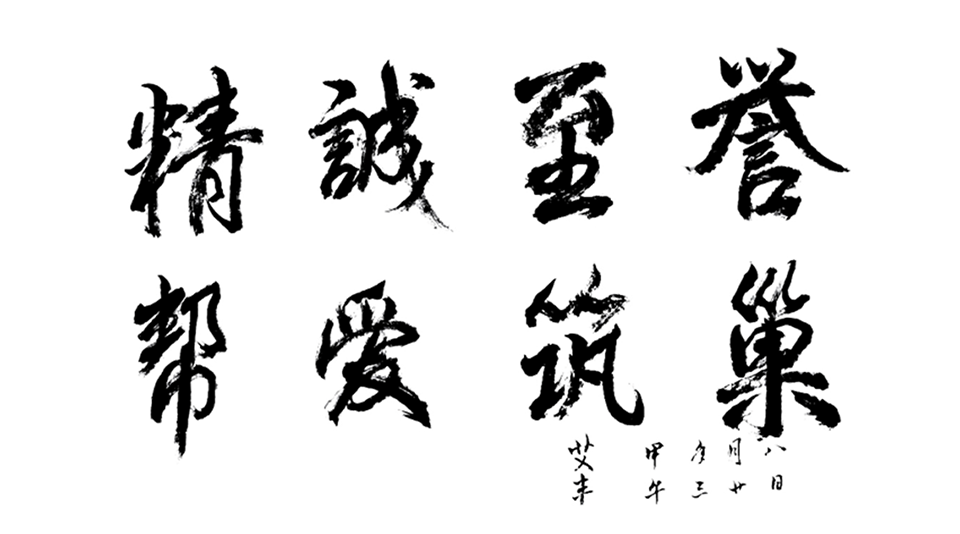 精誠至誉
帮爱筑巢
艾
甲午
年三
月廿
八日